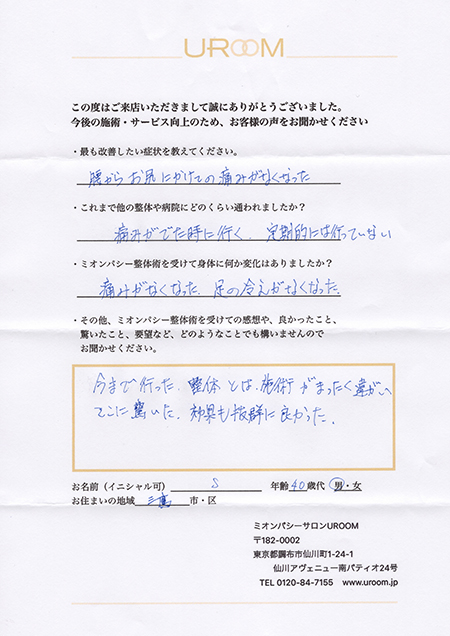 UROOM
この度はご来店いただきまして誠にありがとうございました。
今後の施術・サービス向上のため、お客様の声をお聞かせください
・最も改善したい症状を教えてください。
腰からお尻にかけての痛みがなくなった
・これまで他の整体や病院にどのくらい通われましたか？
痛みがでた時に行く、定期的には行っていない
・ミオンパシー整体術を受けて身体に何か変化はありましたか？
痛みがなくなった、足の冷えがなくなった
・その他、ミオンパシー整体術を受けての感想や、良かったこと、
驚いたこと、要望など、どのようなことでも構いませんので
お聞かせください。
今まで行った、整体とは、施術がまったく違がい
そこに驚いた、効果も抜群に良かった。
お名前（イニシャル可） S 年齢 40 歳代 男・女
お住まいの地域 三鷹 市・区
ミオンパシーサロンUROOM
〒182-0002
東京都調布市仙川町1-24-1
仙川アヴェニュー南パティオ24号
TEL 0120-84-7155 www.uroom.jp